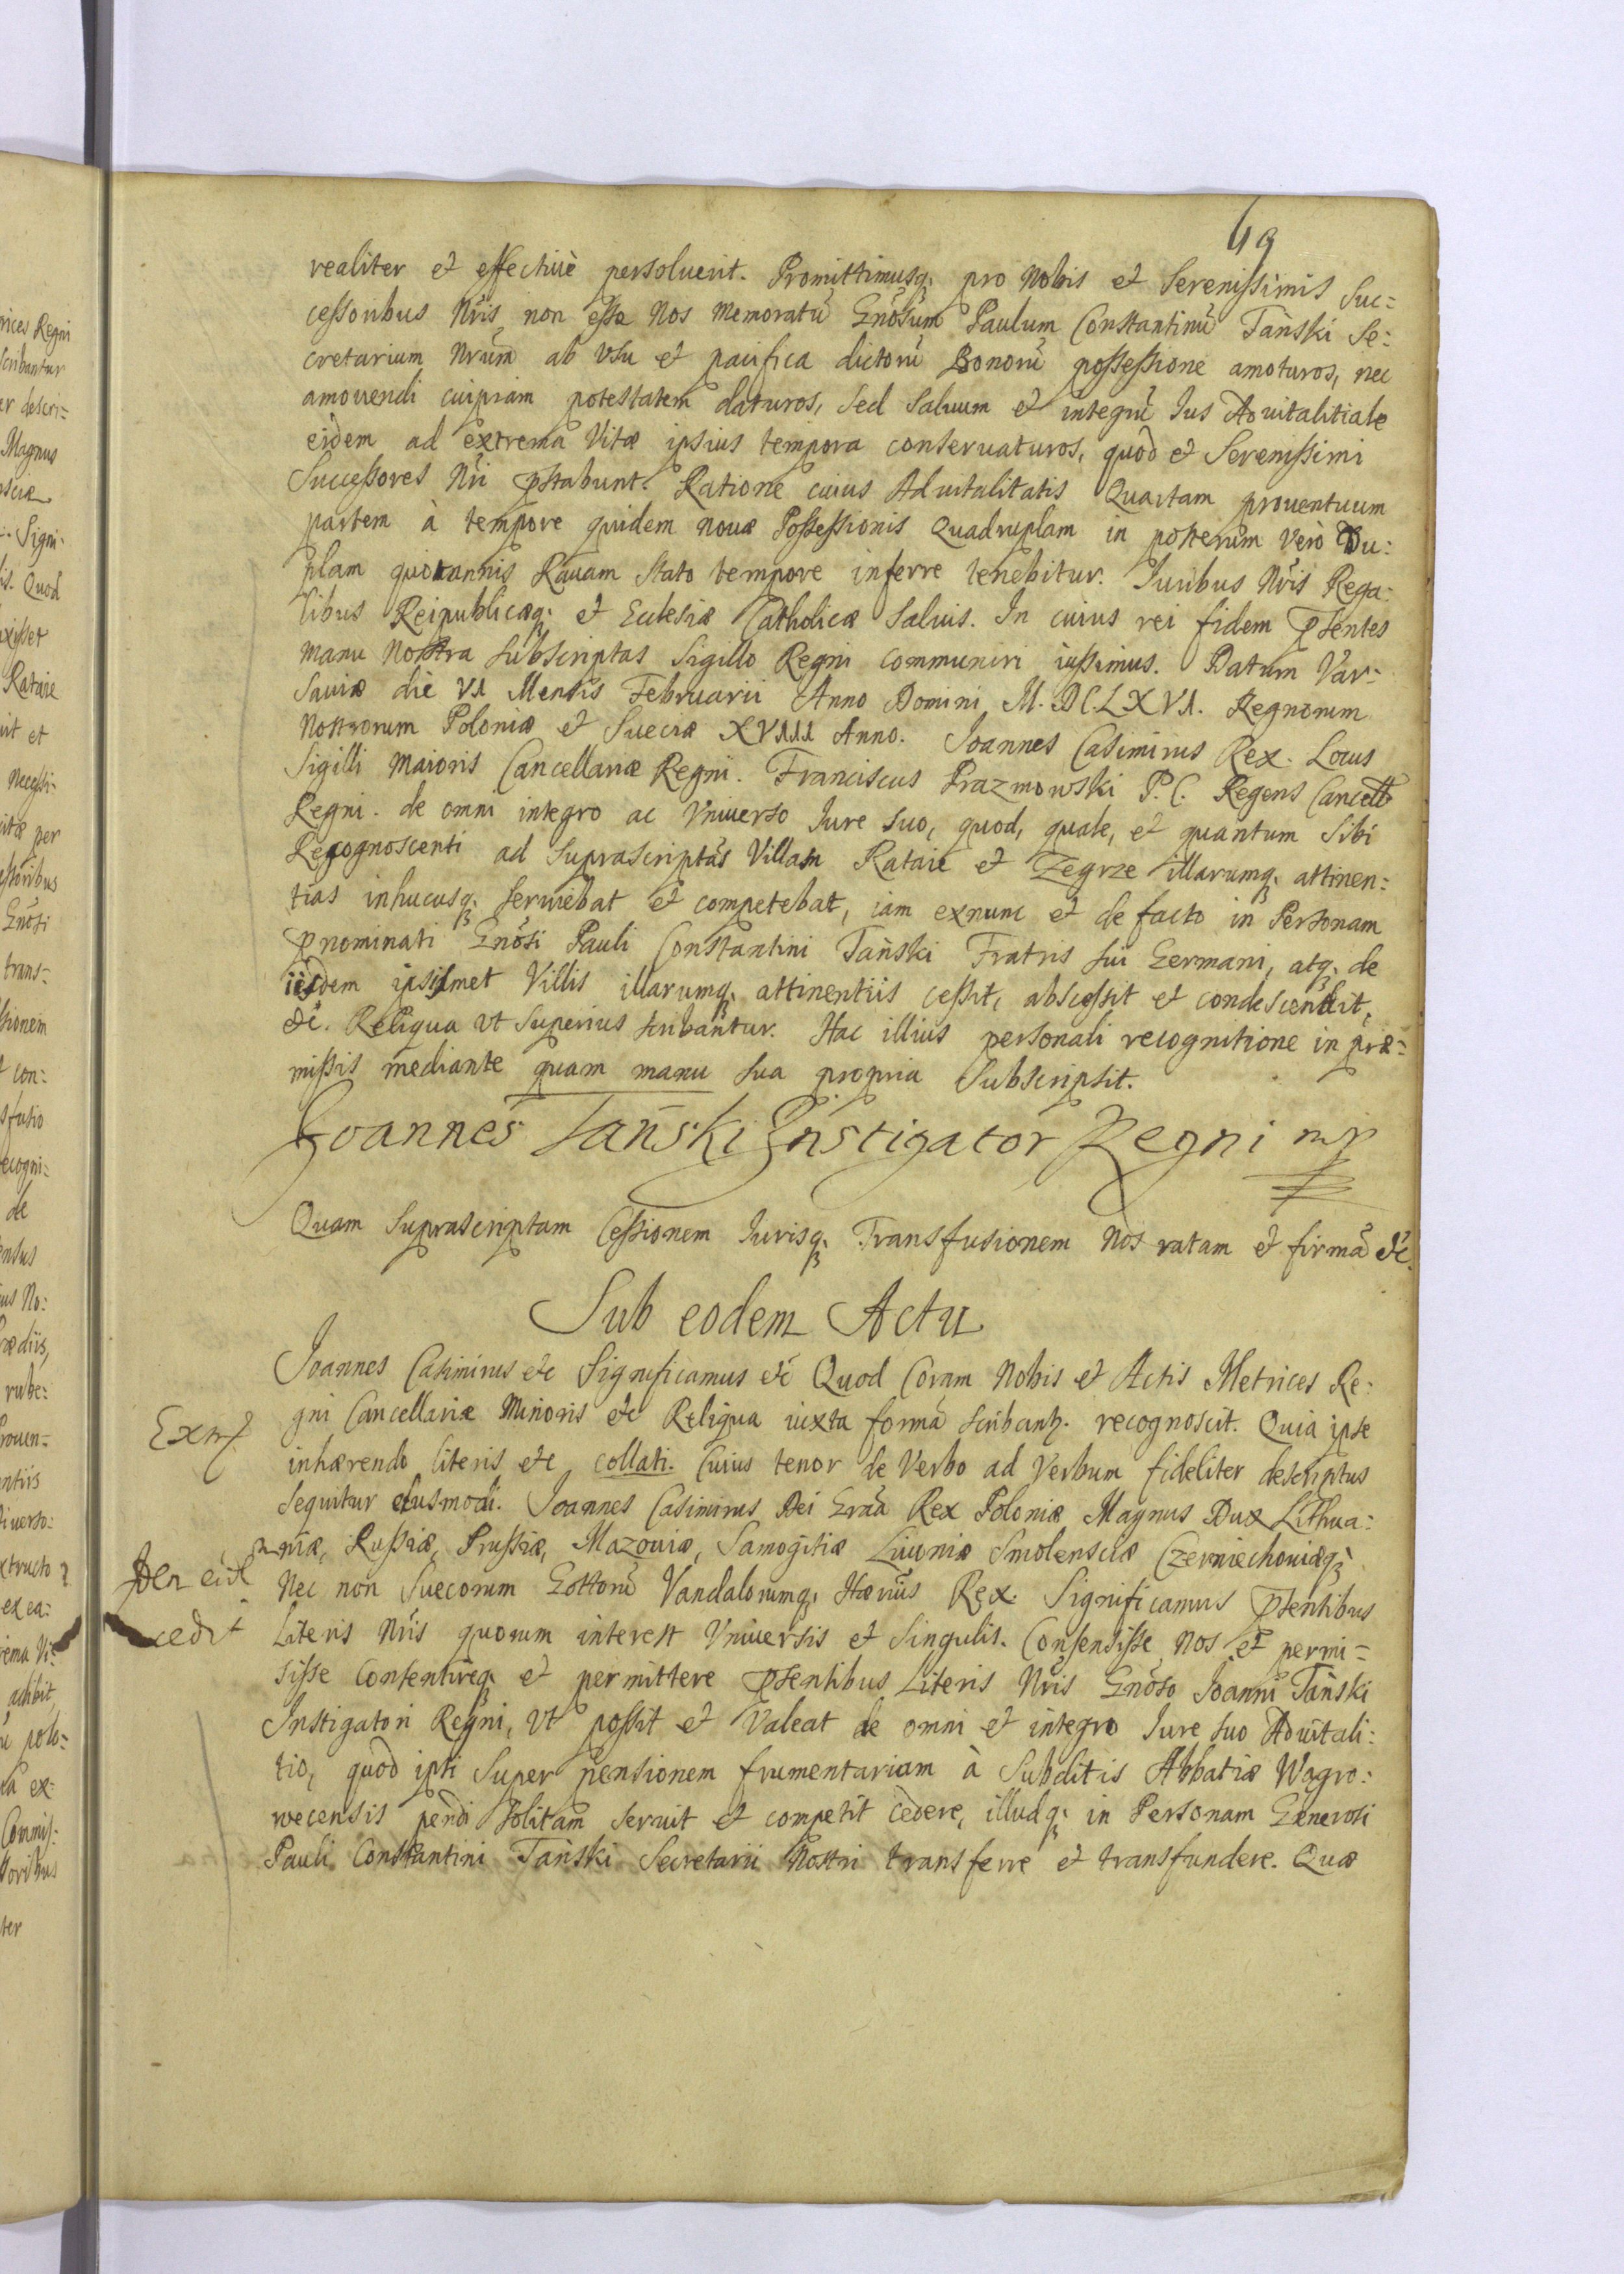 49
realiter et effectiuè persoluerit. Promittimusq; pro Nobis et Serenissimis Suc=
cessoribus Nris non esse Nos memoratũ Gnõsum Paulum Constantinũ Tański Se=
cretarium Nrum ab Vsu et pacifica dictorũ Bonorũ possessione amoturos, nec
amouendi cuipiam potestatem daturos, Sed Saluum et integrũ Ius Aduitalitiale
eidem ad extrema Vitæ ipsius tempora conseruaturos, quod et Serenissimi
Successores Nri pstabunt. Ratione cuius Aduitalitatis Quartam prouentuum
partem à tempore quidem nouæ Possessionis Quadruplam in posterum Verò Du=
plam quotannis Rauam Stato tempore inferre tenebitur. Iuribus Nris Rega=
libus Reipublicæq; et Ecclesiæ Catholicæ Saluis. In cuius rei fidem psentes
manu Nostra Subscriptas Sigillo Regni communiri iussimus. Datum Var=
sauiæ die VI Mensis Februarii Anno Domini M.DC.LXVI. Regnorum
Nostrorum Poloniæ et Sueciæ XVIII Anno. Joannes Casimirus Rex. Locus
Sigilli Maioris Cancellariæ Regni. Franciscus Prazmowski P.C. Regens Cancell
Regni. de omni integro ac Vniuerso Iure Suo, quod, quale, et quantum Sibi
Recognoscenti ad Suprascriptas Villas Rataie et Zegrze illarumq; attinen=
tias inhucusq; Seruiebat et competebat, iam exnunc et de facto in Personam
pnominati Gnõsi Pauli Constantini Tański Fratris Sui Germani, atq; de
iisdem ipsismet Villis illarumq; attinentiis cessit, abscessit et condescendit,
etc. Reliqua ut Superius Scribantur. Hac illius personali recognitione in præ=
missis mediante quam manu Sua propria Subscripsit.
Joannes Tański Instigator Regni mp
Quam Suprascriptam Cessionem Iurisq; Transfusionem Nos ratam et firmã etc.
Sub eodem Actu
Joannes Casimirus etc Significamus etc Quod Coram Nobis et Actis Metrices Re=
gni Cancellariæ Minoris etc Reliqua iuxta formã Scribantr. recognoscit. Quia ipse
inhærendo literis etc collati. Cuius tenor de Verbo ad Verbum fideliter descriptus
Sequitur eiusmodi. Joannes Casimirus Dei Grãa Rex Poloniæ Magnus Dux Lithua=
niæ, Russiæ, Prussiæ, Mazouiæ, Samogitiæ Liuoniæ Smolensciæ Czerniechouiæq;
Nec non Suecorum Gottorũ Vandalorumq; Hærius Rex. Significamus psentibus
Literis Nris quorum interest Vniuersis et Singulis. Consensisse Nos et permi=
sisse Consentireq; et permittere psentibus Literis Nris Gnõso Joanni Tański
Instigatori Regni, Vt possit et Valeat de omni et integro Iure Suo Aduitali=
tio, quod ipsi Super pensionem frumentariam à Subditis Abbatiæ Wagro=
wecensis pendi Solitam Seruit et competit cedere, illudq; in Personam Generosi
Pauli Constantini Tański Secretarii Nostri transferre et transfundere. Quæ
cedit